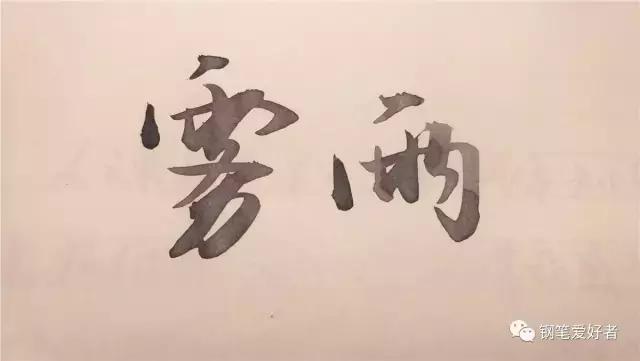 雾雨
钢笔爱好者